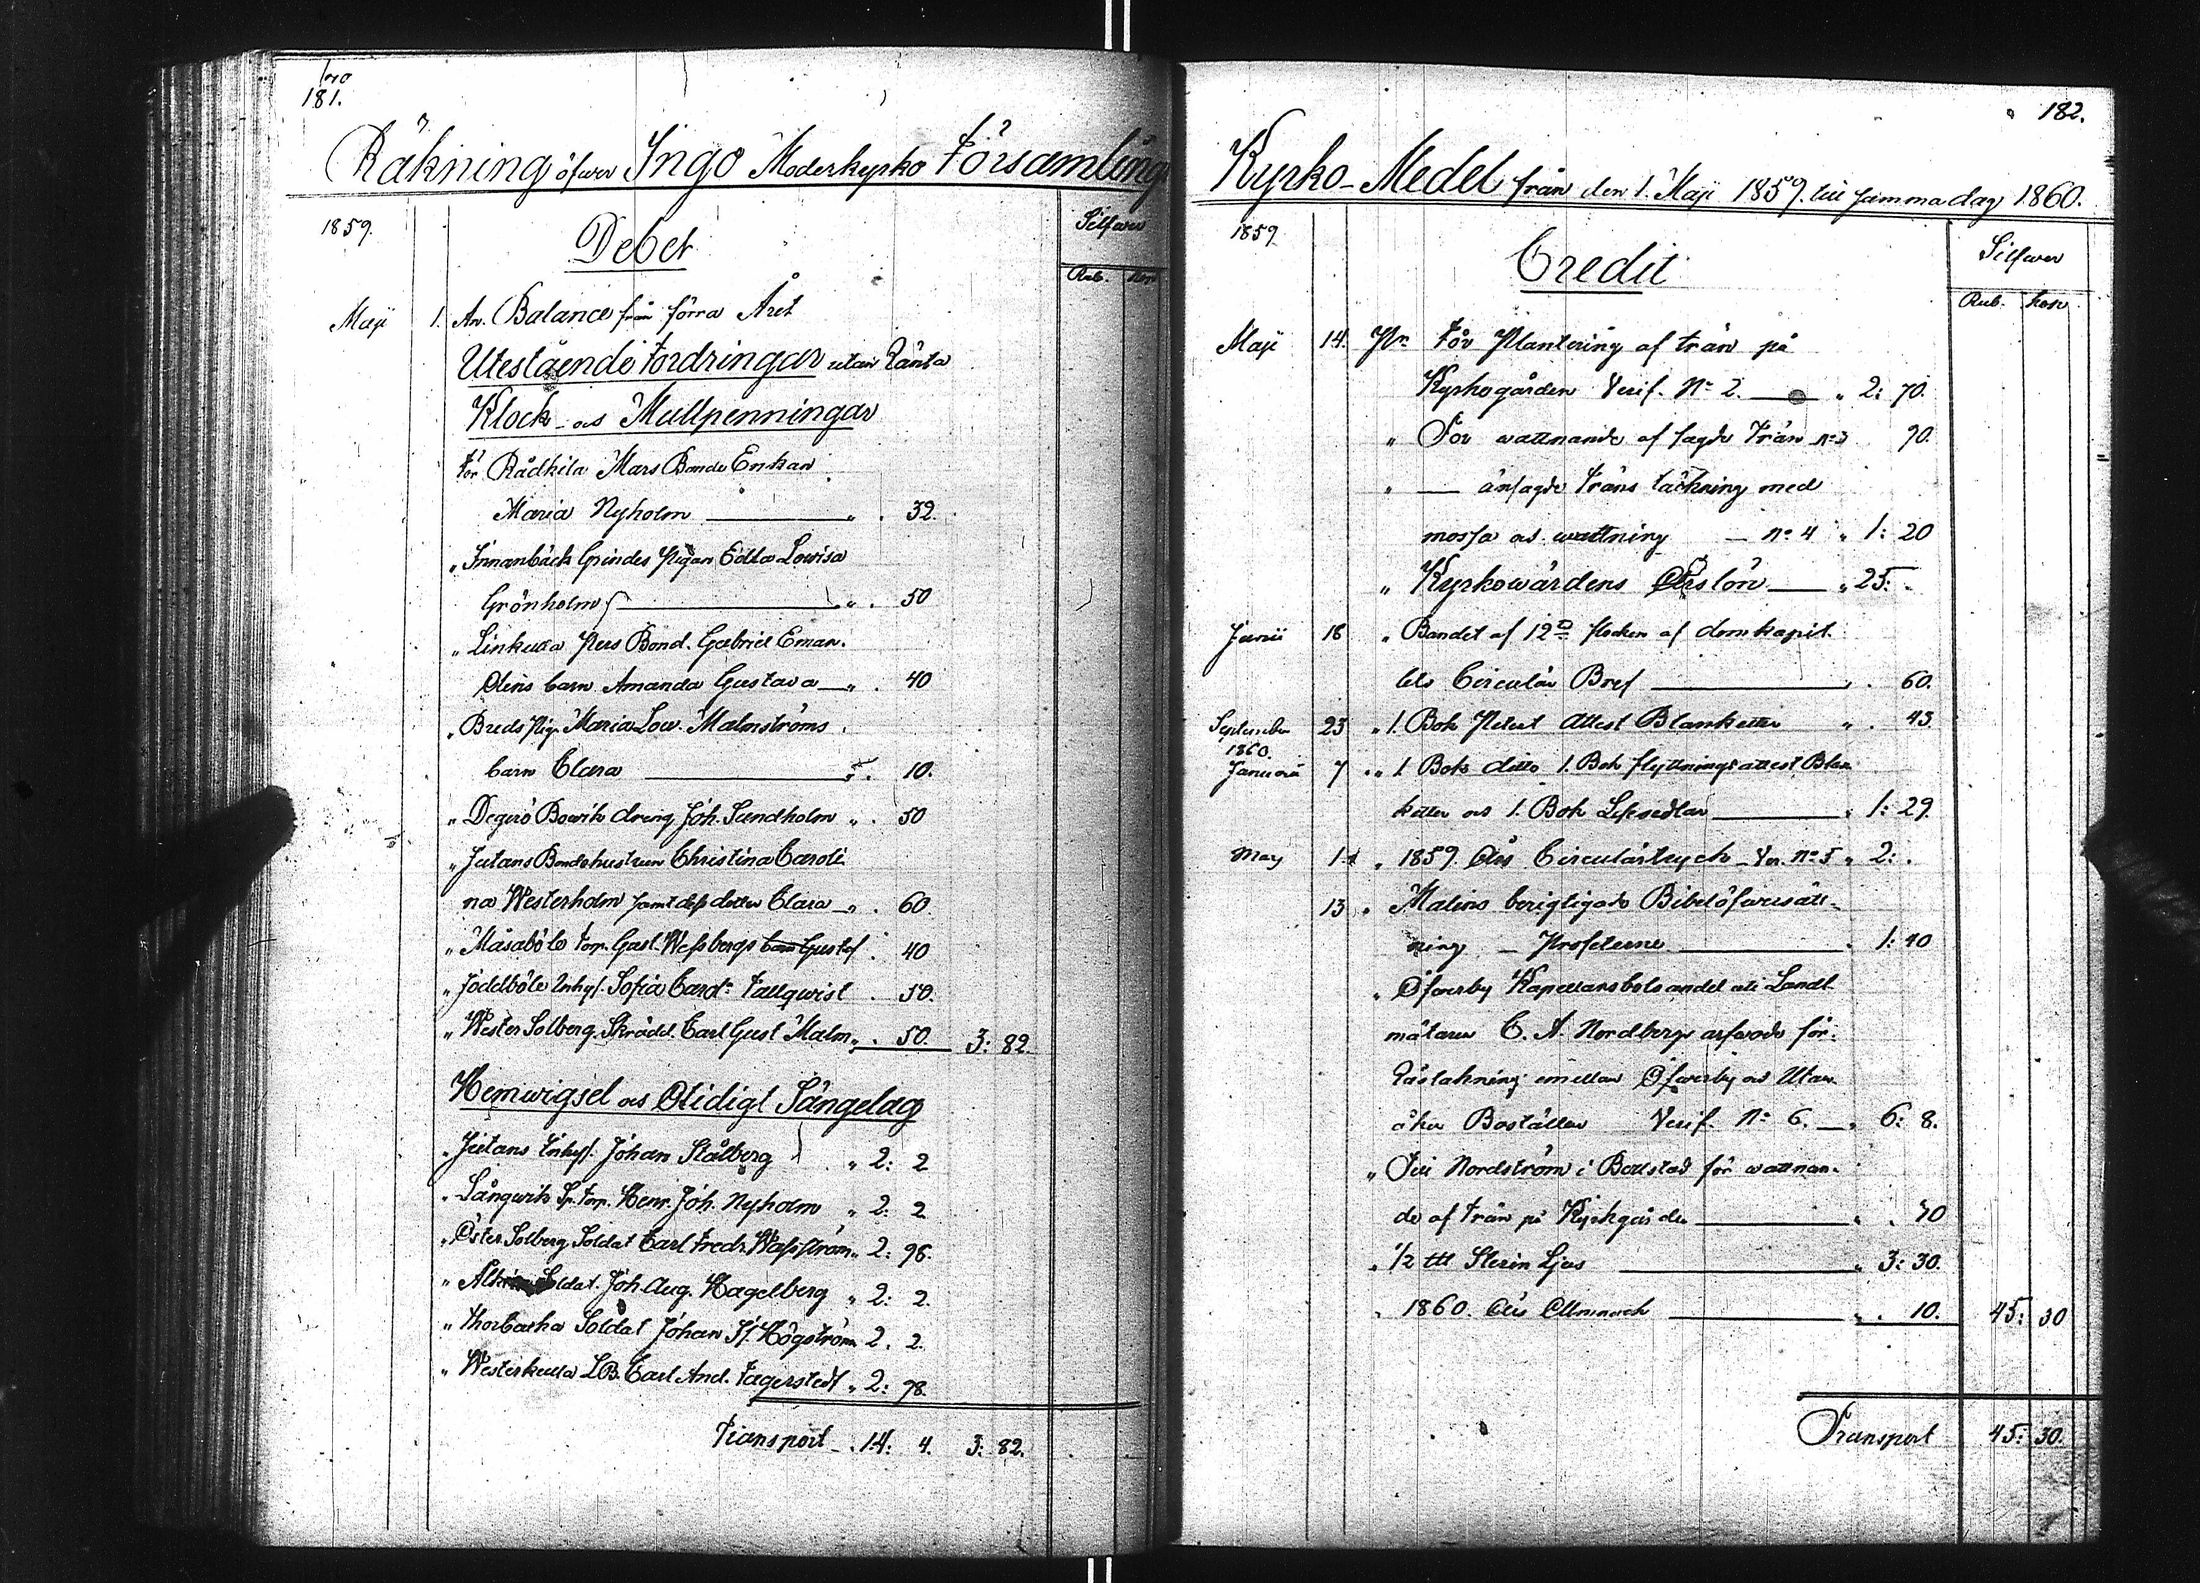 181.
Räkning öfwer Ingo Moderkyrko Församlings
1859.
Debet
Silfwer
Rub. kop
Maji 1. An. Balance från förra Året
Utestående Fordringar utan Ränta
Klock- och Mullpenningar
för Rådkila Mars Bonde Enkan
Maria Nyholm — " . 32.
" Innanbäck Grindes Pigan Edla Lowisa
Grönholm — " . 50
" Linkulla Pers Bond. Gabriel Eman.
Oléns barn Amanda Gustava — " . 40
" Breds Pig. Maria Low. Malmströms
barn Clara — " . 10.
" Degerö Bowik dreng Joh. Sundholm " . 50
" Jutans Bondehustrun Christina Caroli
na Westerholm samt dess dotter Clara — " . 60
" Måsaböle torp. Gust. Wessbergs barn Gustaf . 40
" Joddböle Inhys. Sofia Carol: Tallqwist . 50.
" Wester Solberg. Skrädd. Carl Gust Malm " . 50. 3: 82.
Hemwigsel och Otidigt Sängelag
" Jutans Inhys. Johan Stålberg " 2: 2
" Långwik Sp. torp. Henr. Joh. Nyholm " 2: 2
" Öster Solberg Soldat Carl Fredr. Wasström " 2: 98.
" Soldat. Joh. Aug. Hagelberg " 2: 2.
" Thorbacka Soldat Johan Högström 2. 2.
" Westerkulla Carl And. Fagerstedt " 2: 98.
Transport — . 14: 4. 3: 82.
182.
Kyrko-Medel från den 1. Maji 1859. till samma dag 1860.
1859
Credit
Silfwer
Rub. kop
Maji 14. Pr. För Plantering af trän på
Kyrkogården Verif. No 2. — " 2: 70.
" För wattnande af sagde Trän No 3 90.
" — änsagde Träns täckning med
mossa och wattning — No 4 " 1: 20
" Kyrkowärdens Årslön — " 25: .
Junii 18 " Bandet af 12te flocken af domkapit
lets Circulär Bref — " . 60.
September 23 " 1. Bok Prest Attest Blanketter " . 43.
1860.
Januarii 7 " 1 Bok ditto 1. Bok flyttningsattest Blan
ketter och 1. Bok Läksedlar — " 1: 29.
May 1 " 1859 Års Circulärtryck — Ver. No 5 " 2: .
13 " Malins berigtigade Bibelöfwersätt-
ning — Profeterne — " 1: 40
" Öfwerby Kapellansbols andel uti Landt
mätaren C. A. Nordbergs arfwode för
Råstakning emellan Öfwerby och Utan
åker Boställen Verif. No 6. — " 6: 8.
" Till Nordström i Bollstad för wattnan-
de af trän på Kyrkgården — " . 70
" 1/2 ttt Sterin Ljus — " 3: 30.
" 1860. Års Allmanach — " . 10. 45: 30
Transport 45: 30.